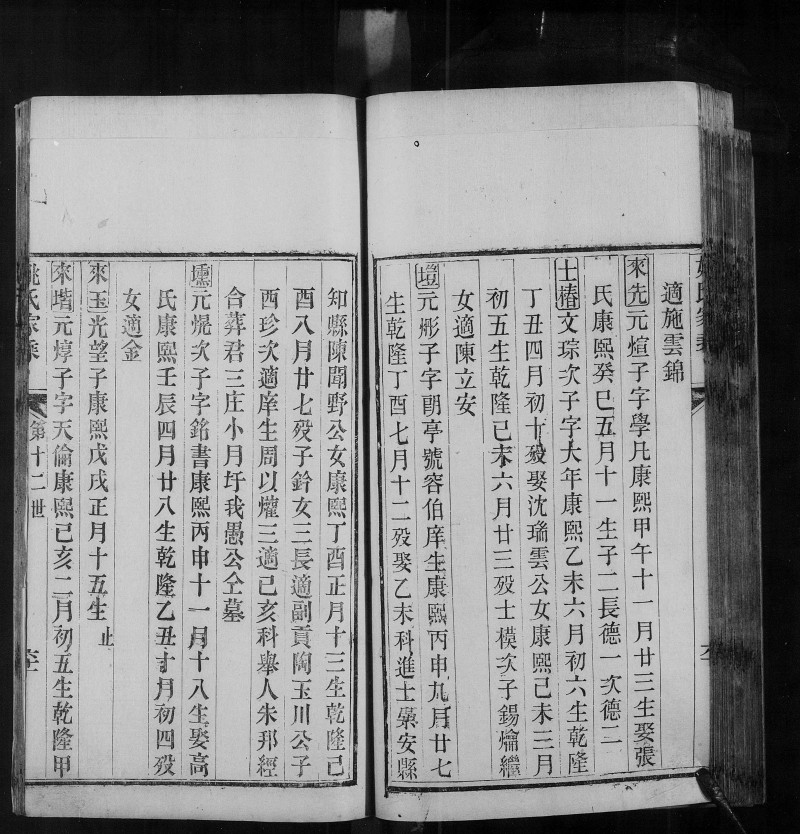 適施雲錦
來先元煊子字學凡康熙甲午十一月廿三生娶張
氏康熙癸巳五月十一生子二長德一次德二
士椿文琮次子字大年康熙乙未六月初六生乾隆
丁丑四月初十歿娶沈瑞雲公女康熙己未三月
初五生乾隆己未六月廿三歿士模次子錫爚繼
女適陳立安
塏元彤子字朙亭號容伯庠生康熙丙申九月廿七
生乾隆丁酉七月十二歿娶乙未科進士藁安縣
知縣陳聞野公女康熙丁酉正月十三生乾隆己
酉八月廿七歿子鈐女三長適副貢陶玉川公子
西珍次適庠生周以爟三適己亥科舉人朱邦經
合葬君三庄小月圩我愚公仝墓
壎元焜次子字銘書康熙丙申十一月十八生娶高
氏康熙壬辰四月廿八生乾隆乙丑十月初四歿
女適金
來玉光望子康熙戊戌正月十五生 止
來堦元焞子字天倫康熙己亥二月初五生乾隆甲
姚氏家乘 第十二世